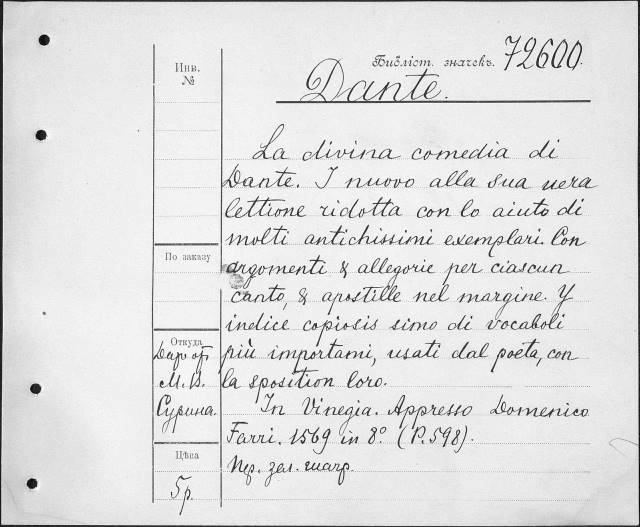 Библіот. значекъ. 72600.
Dante.
Инв.
№
La divina comedia di
Dante. I nuovo alla sua uera
lettione ridotta con lo aiuto di
molti antichissimi exemplari. Con
argomenti & allegorie per ciascun
canto, & apostille nel margine. Y
indice copiosis simo di vocaboli
più importami, usati dal poeta, con
la sposition loro.
In Vinegia. Appresso Domenico
Farri. 1569 in 8º. (P. 598).
Пер. зел. шагр.
По заказу
Откуда
Дар от
М. В.
Сурина.
Цѣна
5 р.